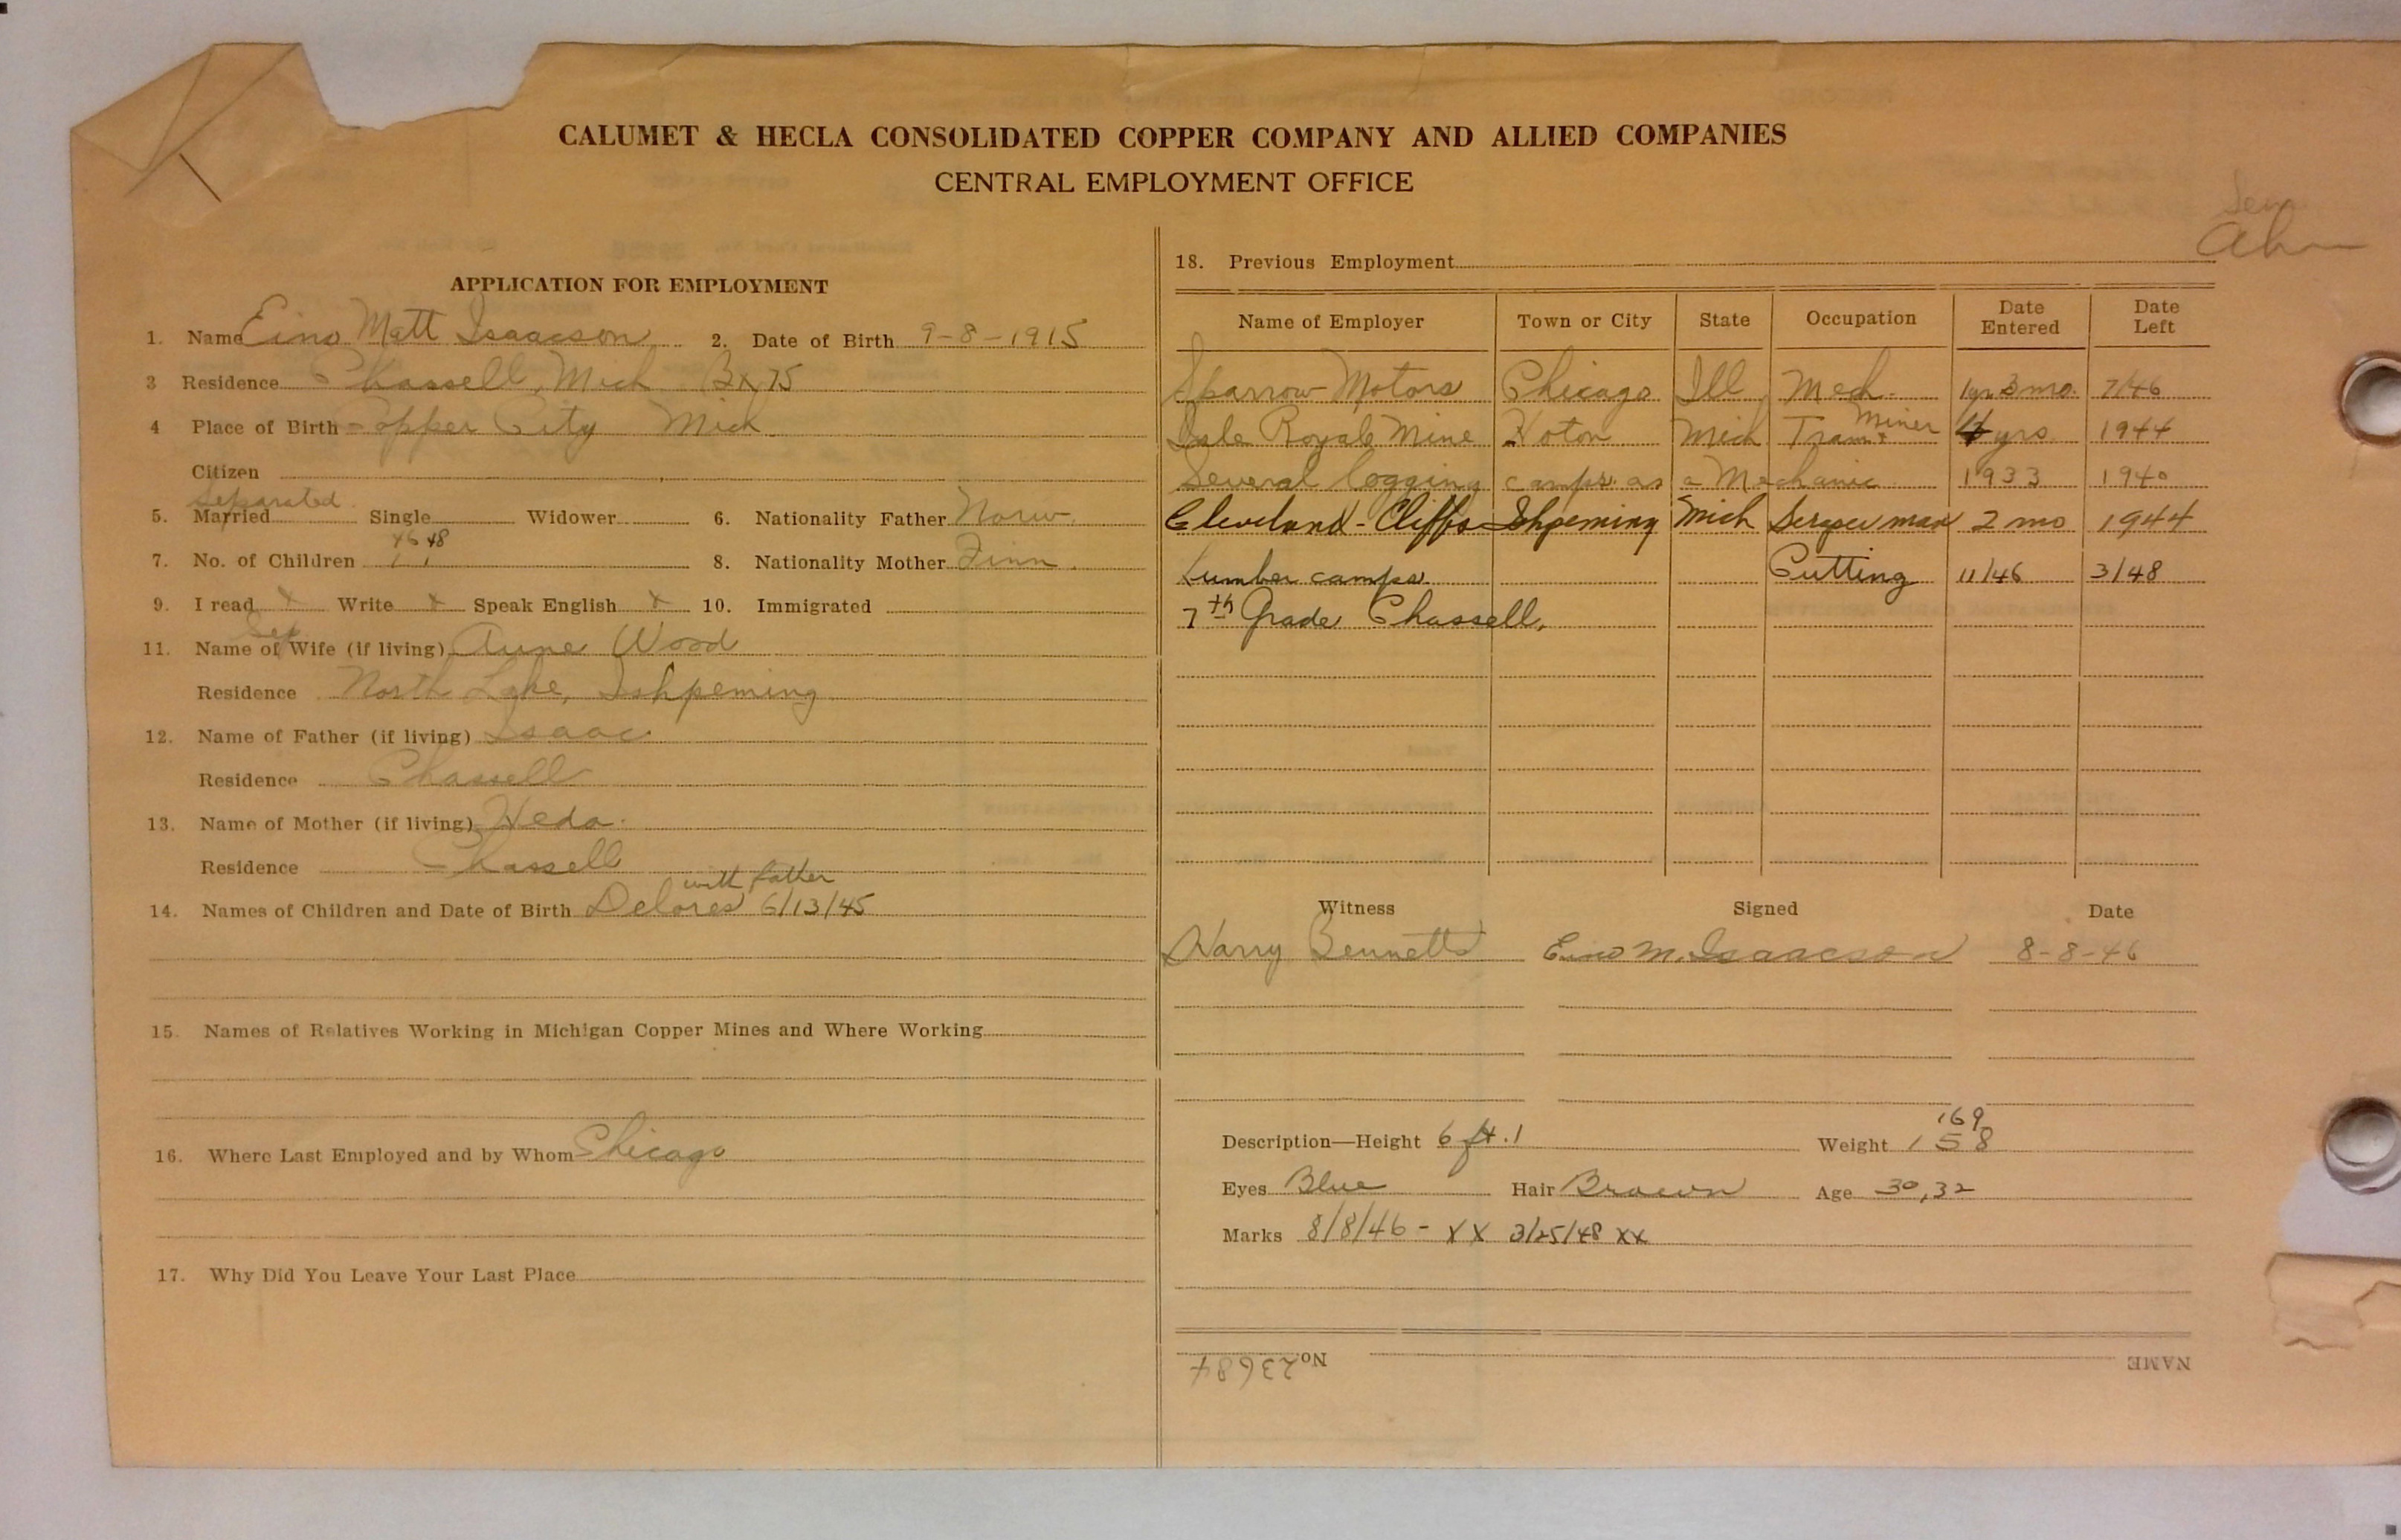 CALUMET & HECLA CONSOLIDATED COPPER COMPANY AND ALLIED COMPANIES
CENTRAL EMPLOYMENT OFFICE
APPLICATION FOR EMPLOYMENT
1. Name Eino Matt Isaacson 2. Date of Birth 9-8-1915
3 Residence Chassell, Mich Bx 75
4 Place of Birth Copper City Mich
Citizen
Separated
5. Married Single Widower 6. Nationality Father Norw.
46 48
7. No. of Children 1 1 8. Nationality Mother Finn.
9. I read x Write x Speak English x 10. Immigrated
Sep.
11. Name of Wife (if living) Aune Wood
Residence North Lake, Ishpeming
12. Name of Father (if living) Isaac
Residence Chassell
13. Name of Mother (if living) Heda.
Residence Chassell
with father
14. Names of Children and Date of Birth Delores 6/13/45
15. Names of Relatives Working in Michigan Copper Mines and Where Working
16. Where Last Employed and by Whom Chicago
17. Why Did You Leave Your Last Place
18. Previous Employment
Name of Employer Town or City State Occupation Date Entered Date Left
Sparrow Motors Chicago Ill Mech. 1yr 3 mo. 7/46
Isle Royale Mine Hoton Mich Tram & Miner 4 yrs. 1944
Several logging camps as a Mechanic 1933 1940
Cleveland-Cliffs Ishpeming Mich man 2 mo 1944
Lumber camps Cutting 11/46 3/48
7th Grade Chassell.
Witness Signed Date
Harry Bennetts Eino M. Isaacson 8-8-46
169
Description—Height 6 ft. 1 Weight 158
Eyes Blue Hair Brown Age 30, 32
Marks 8/8/46 - XX 3/25/48 XX
No. 23684 NAME